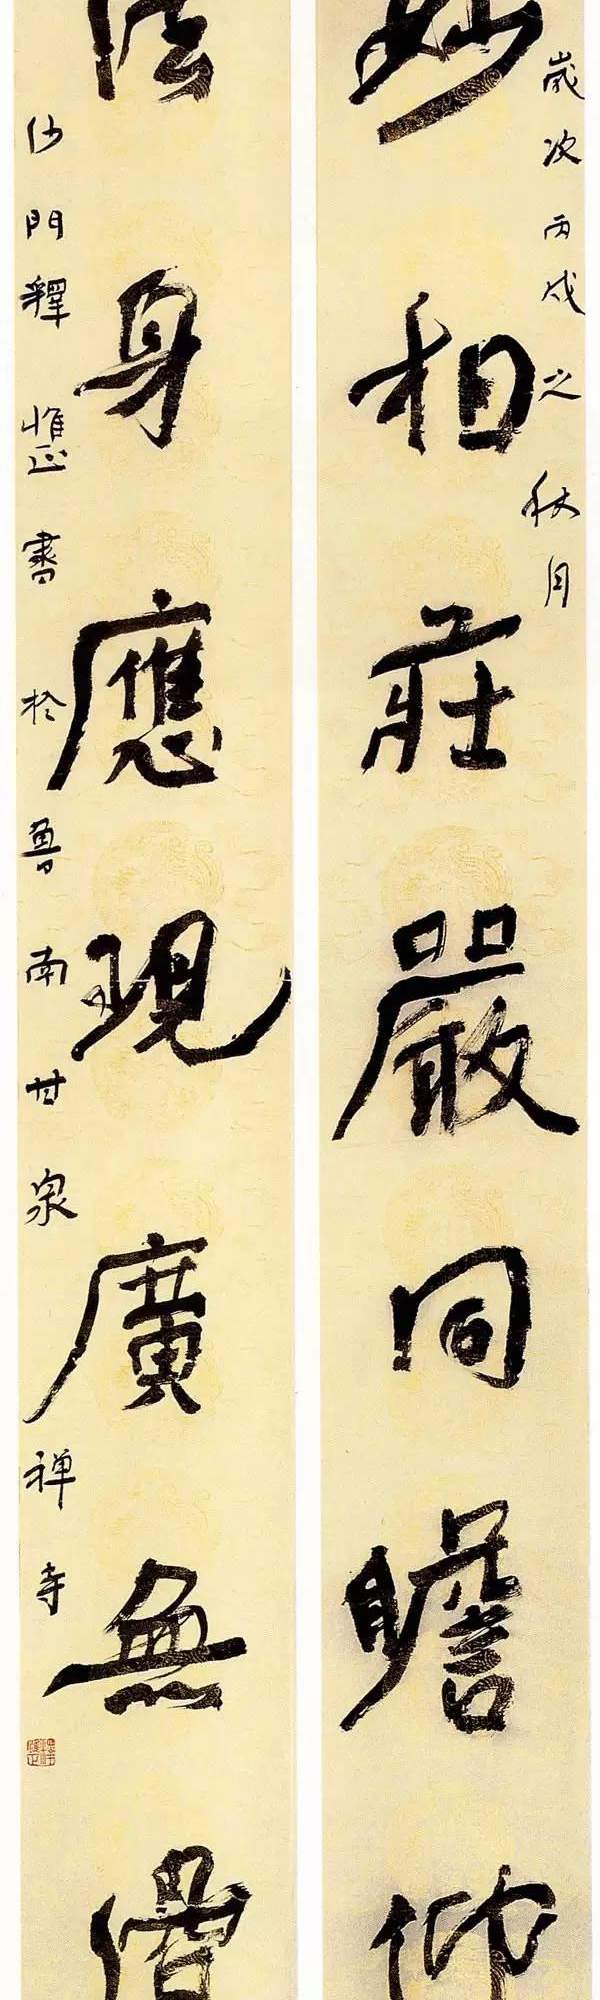 妙相莊嚴同瞻仰
歲次丙戌之秋月
法身應現廣無
沙門釋惟正書於魯南甘泉禪寺